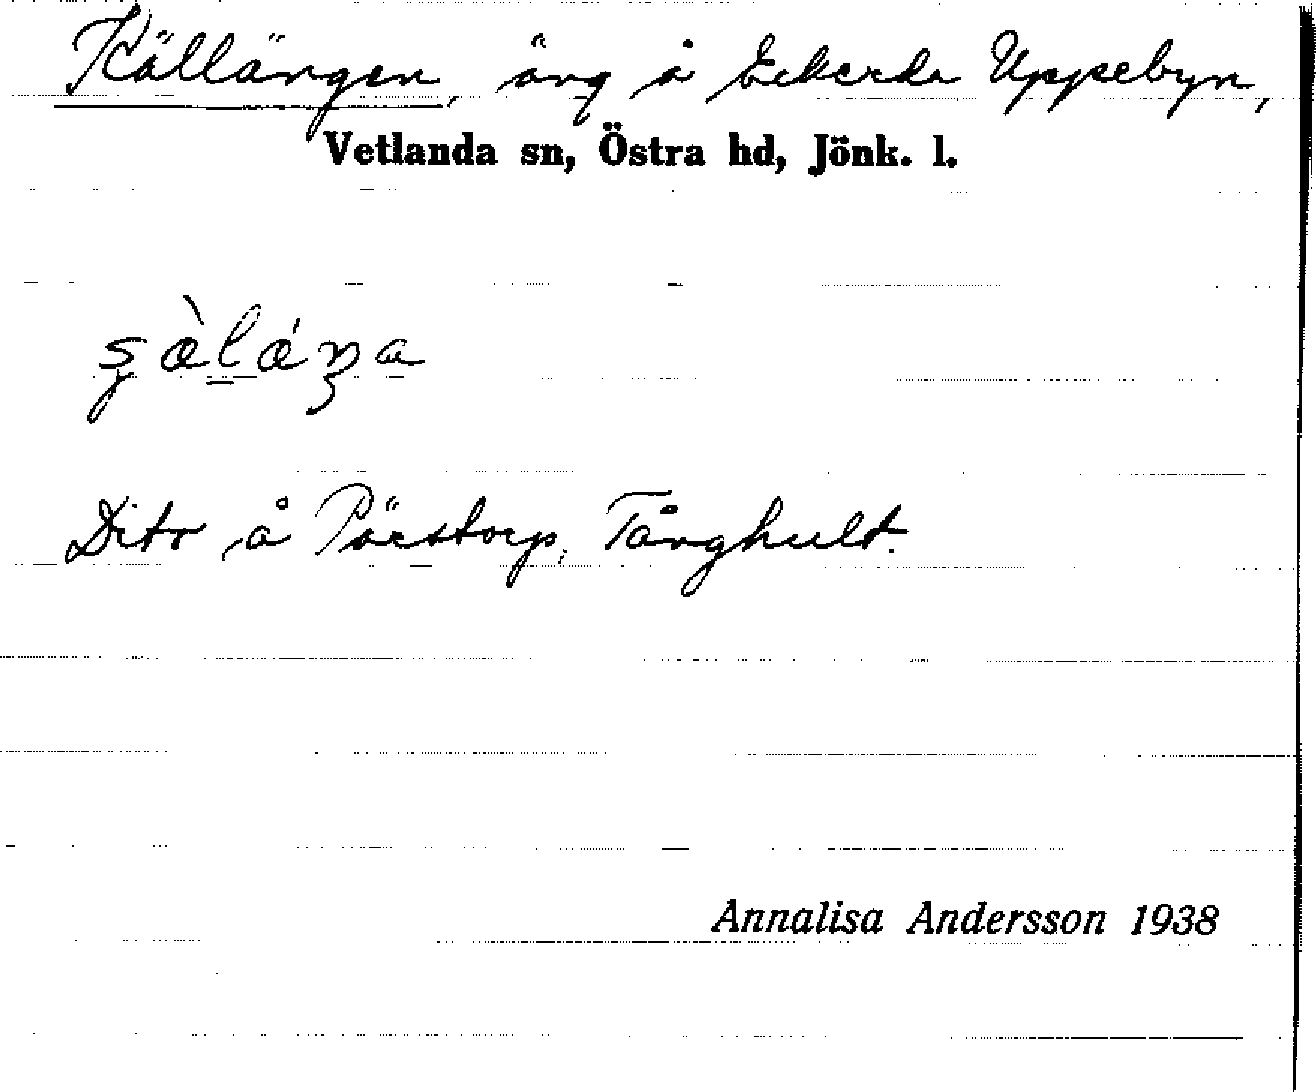 Källängen, äng å Eckerda Uppebyn,
Vetlanda sn, Östra hd, Jönk. l.
Dito å Pärstorp, Tånghult.
Annalisa Andersson 1938